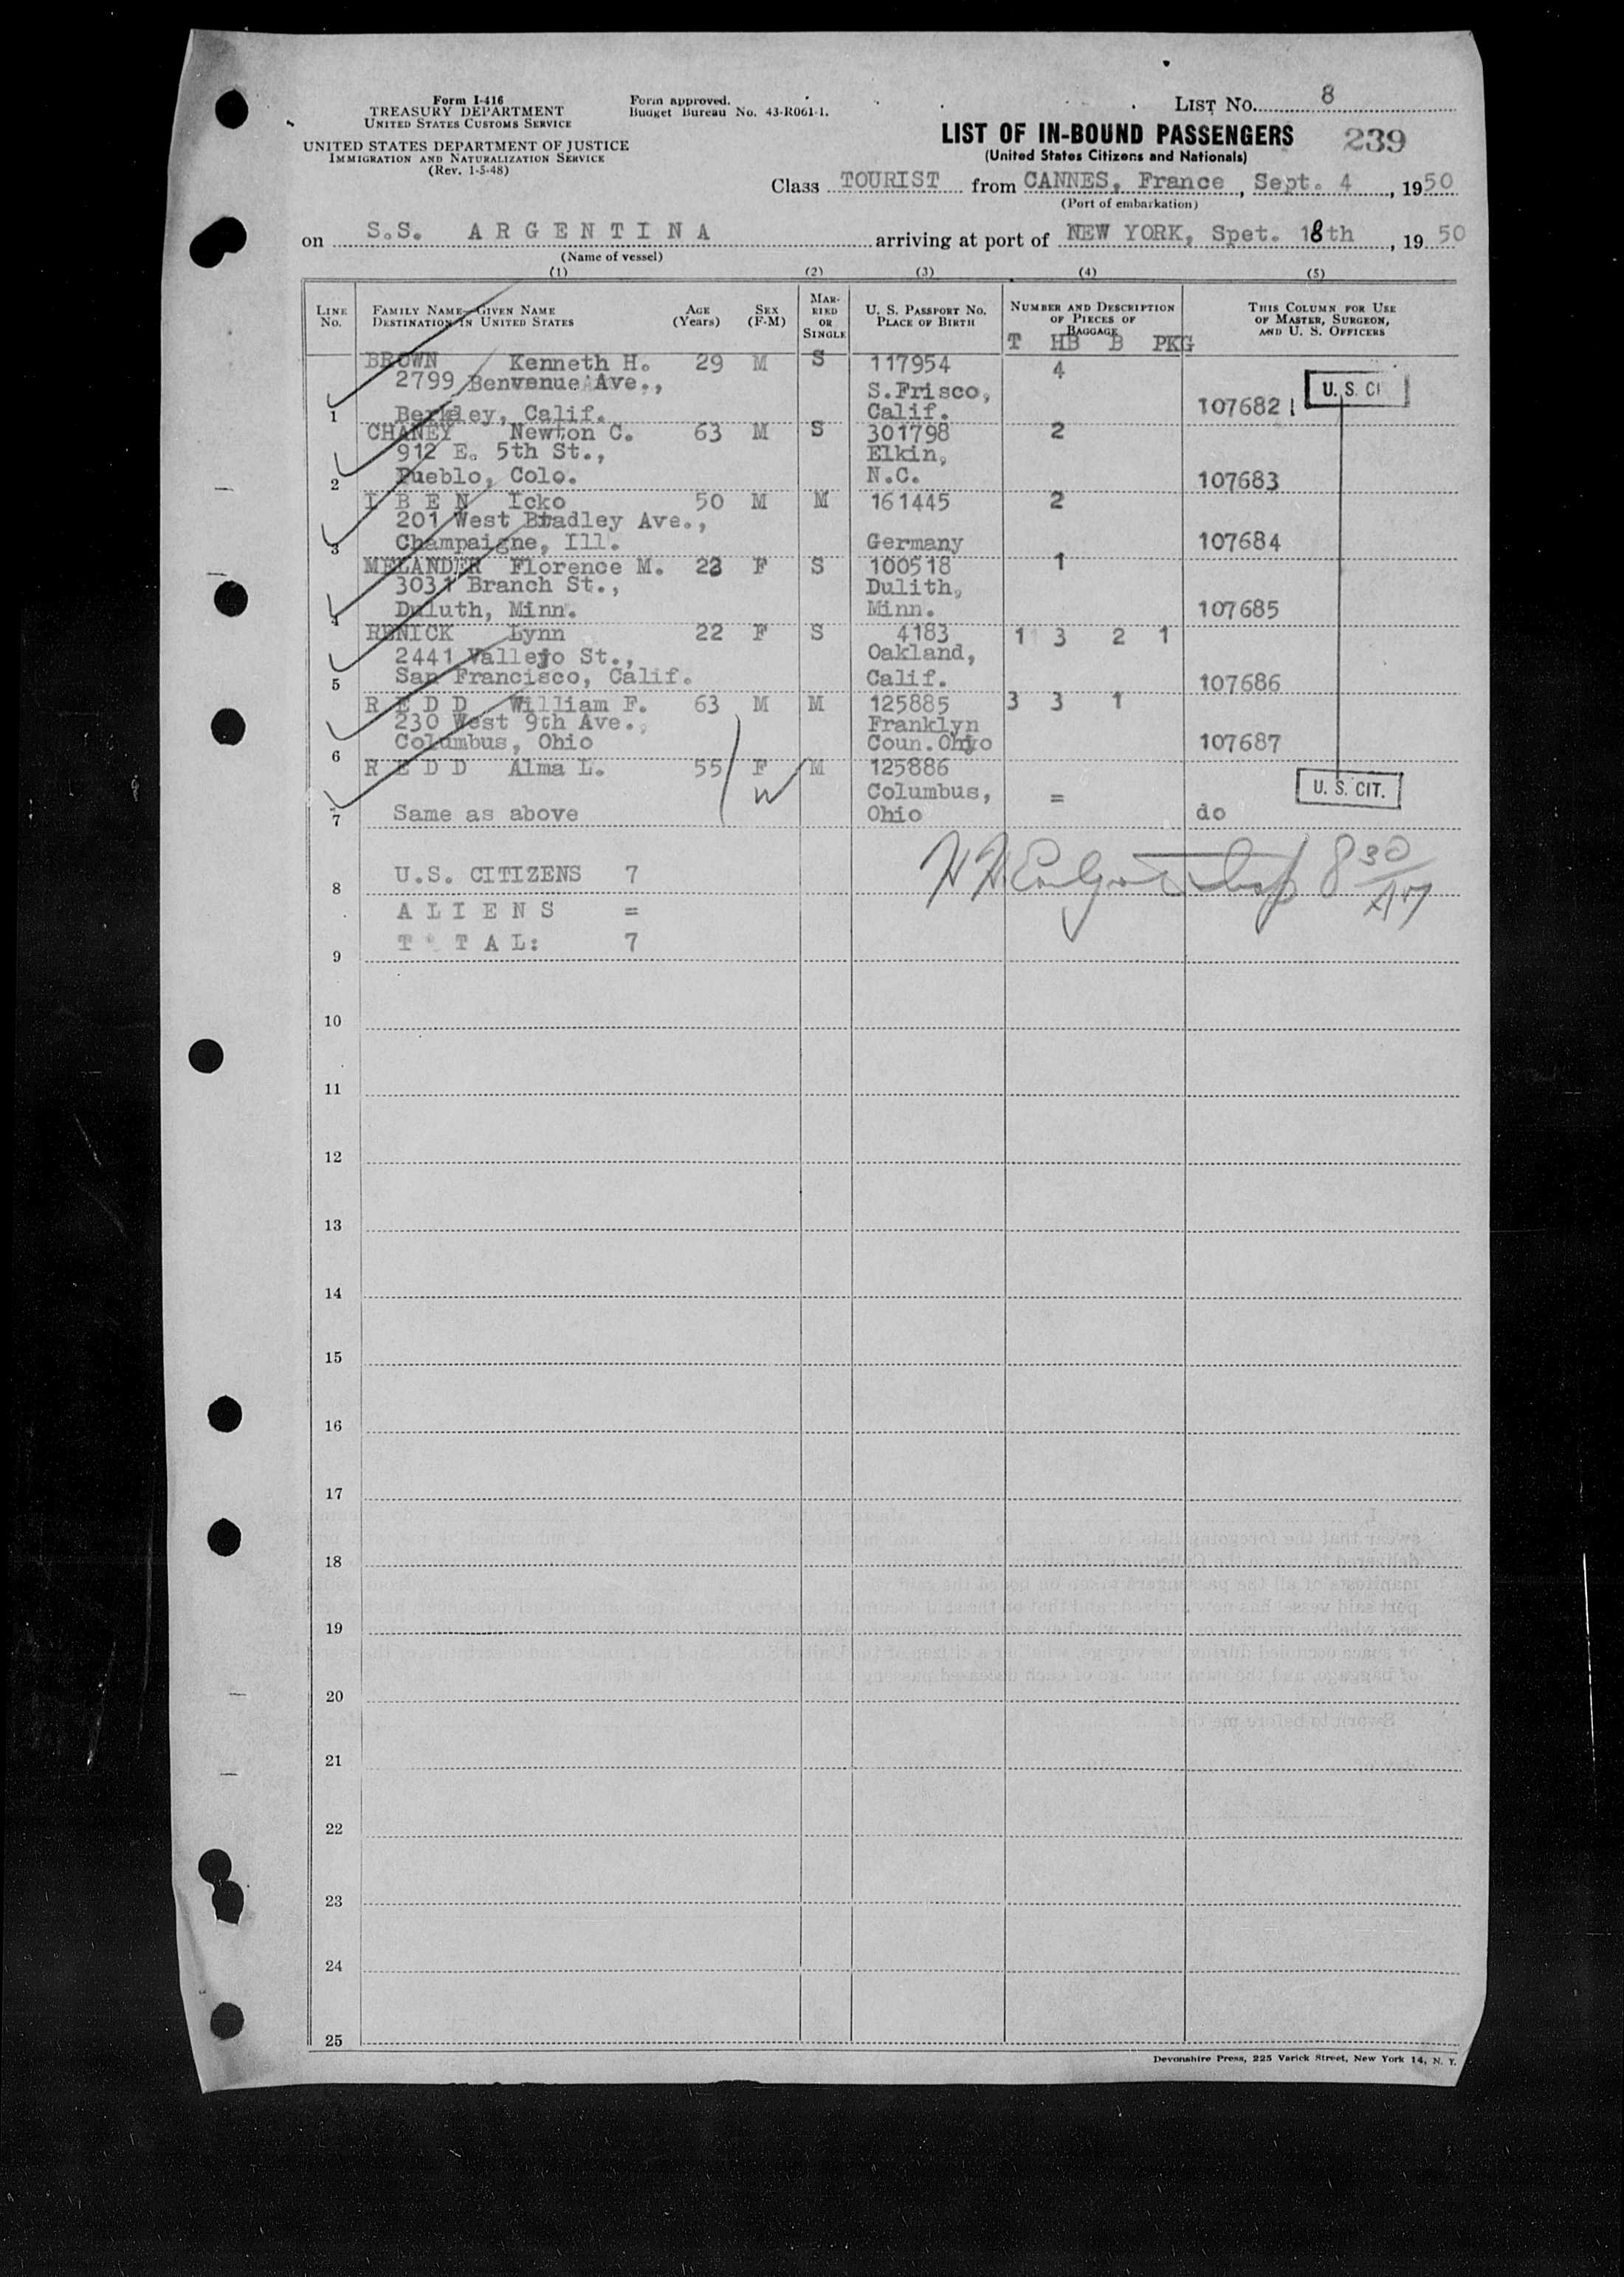 Form I-416
TREASURY DEPARTMENT
UNITED STATES CUSTOMS SERVICE
UNITED STATES DEPARTMENT OF JUSTICE
IMMIGRATION AND NATURALIZATION SERVICE
(Rev. 1-5-48)
Form approved.
Budget Bureau No. 43-R061-1.
LIST NO. 8
LIST OF IN-BOUND PASSENGERS 239
(United States Citizens and Nationals)
Class TOURIST from CANNES, France, Sept. 4, 1950
(Port of embarkation)
on S.S. ARGENTINA arriving at port of NEW YORK, Spet. 18th, 1950
(Name of vessel)
(1) (2) (3) (4) (5)
LINE NO. FAMILY NAME—GIVEN NAME DESTINATION IN UNITED STATES AGE (Years) SEX (F-M) MARRIED OR SINGLE U. S. PASSPORT NO. PLACE OF BIRTH NUMBER AND DESCRIPTION OF PIECES OF BAGGAGE THIS COLUMN FOR USE OF MASTER, SURGEON, AND U. S. OFFICERS
T HB B PKG
BROWN Kenneth H. 29 M S 117954 4
2799 Benvenue Ave., S.Frisco, U. S. CI
1 Berkeley, Calif. Calif. 107682
CHANEY Newton C. 63 M S 301798 2
912 E. 5th St., Elkin,
2 Pueblo, Colo. N.C. 107683
I B E N Icko 50 M M 161445 2
201 West Bradley Ave.,
3 Champaigne, Ill. Germany 107684
MELANDER Florence M. 23 F S 100518 1
3031 Branch St., Dulith,
4 Duluth, Minn. Minn. 107685
RENICK Lynn 22 F S 4183 1 3 2 1
2441 Vallejo St., Oakland,
5 San Francisco, Calif. Calif. 107686
R E D D William F. 63 M M 125885 3 3 1
230 West 9th Ave., Franklyn
6 Columbus, Ohio Coun. Ohio 107687
R E D D Alma L. 55 F M 125886
W Columbus, = U. S. CIT.
7 Same as above Ohio do
8 U.S. CITIZENS 7 8 30
A L I E N S =
9 T TAL: 7
10
11
12
13
14
15
16
17
18
19
20
21
22
23
24
25
Devonshire Press, 225 Varick Street, New York 14, N. Y.